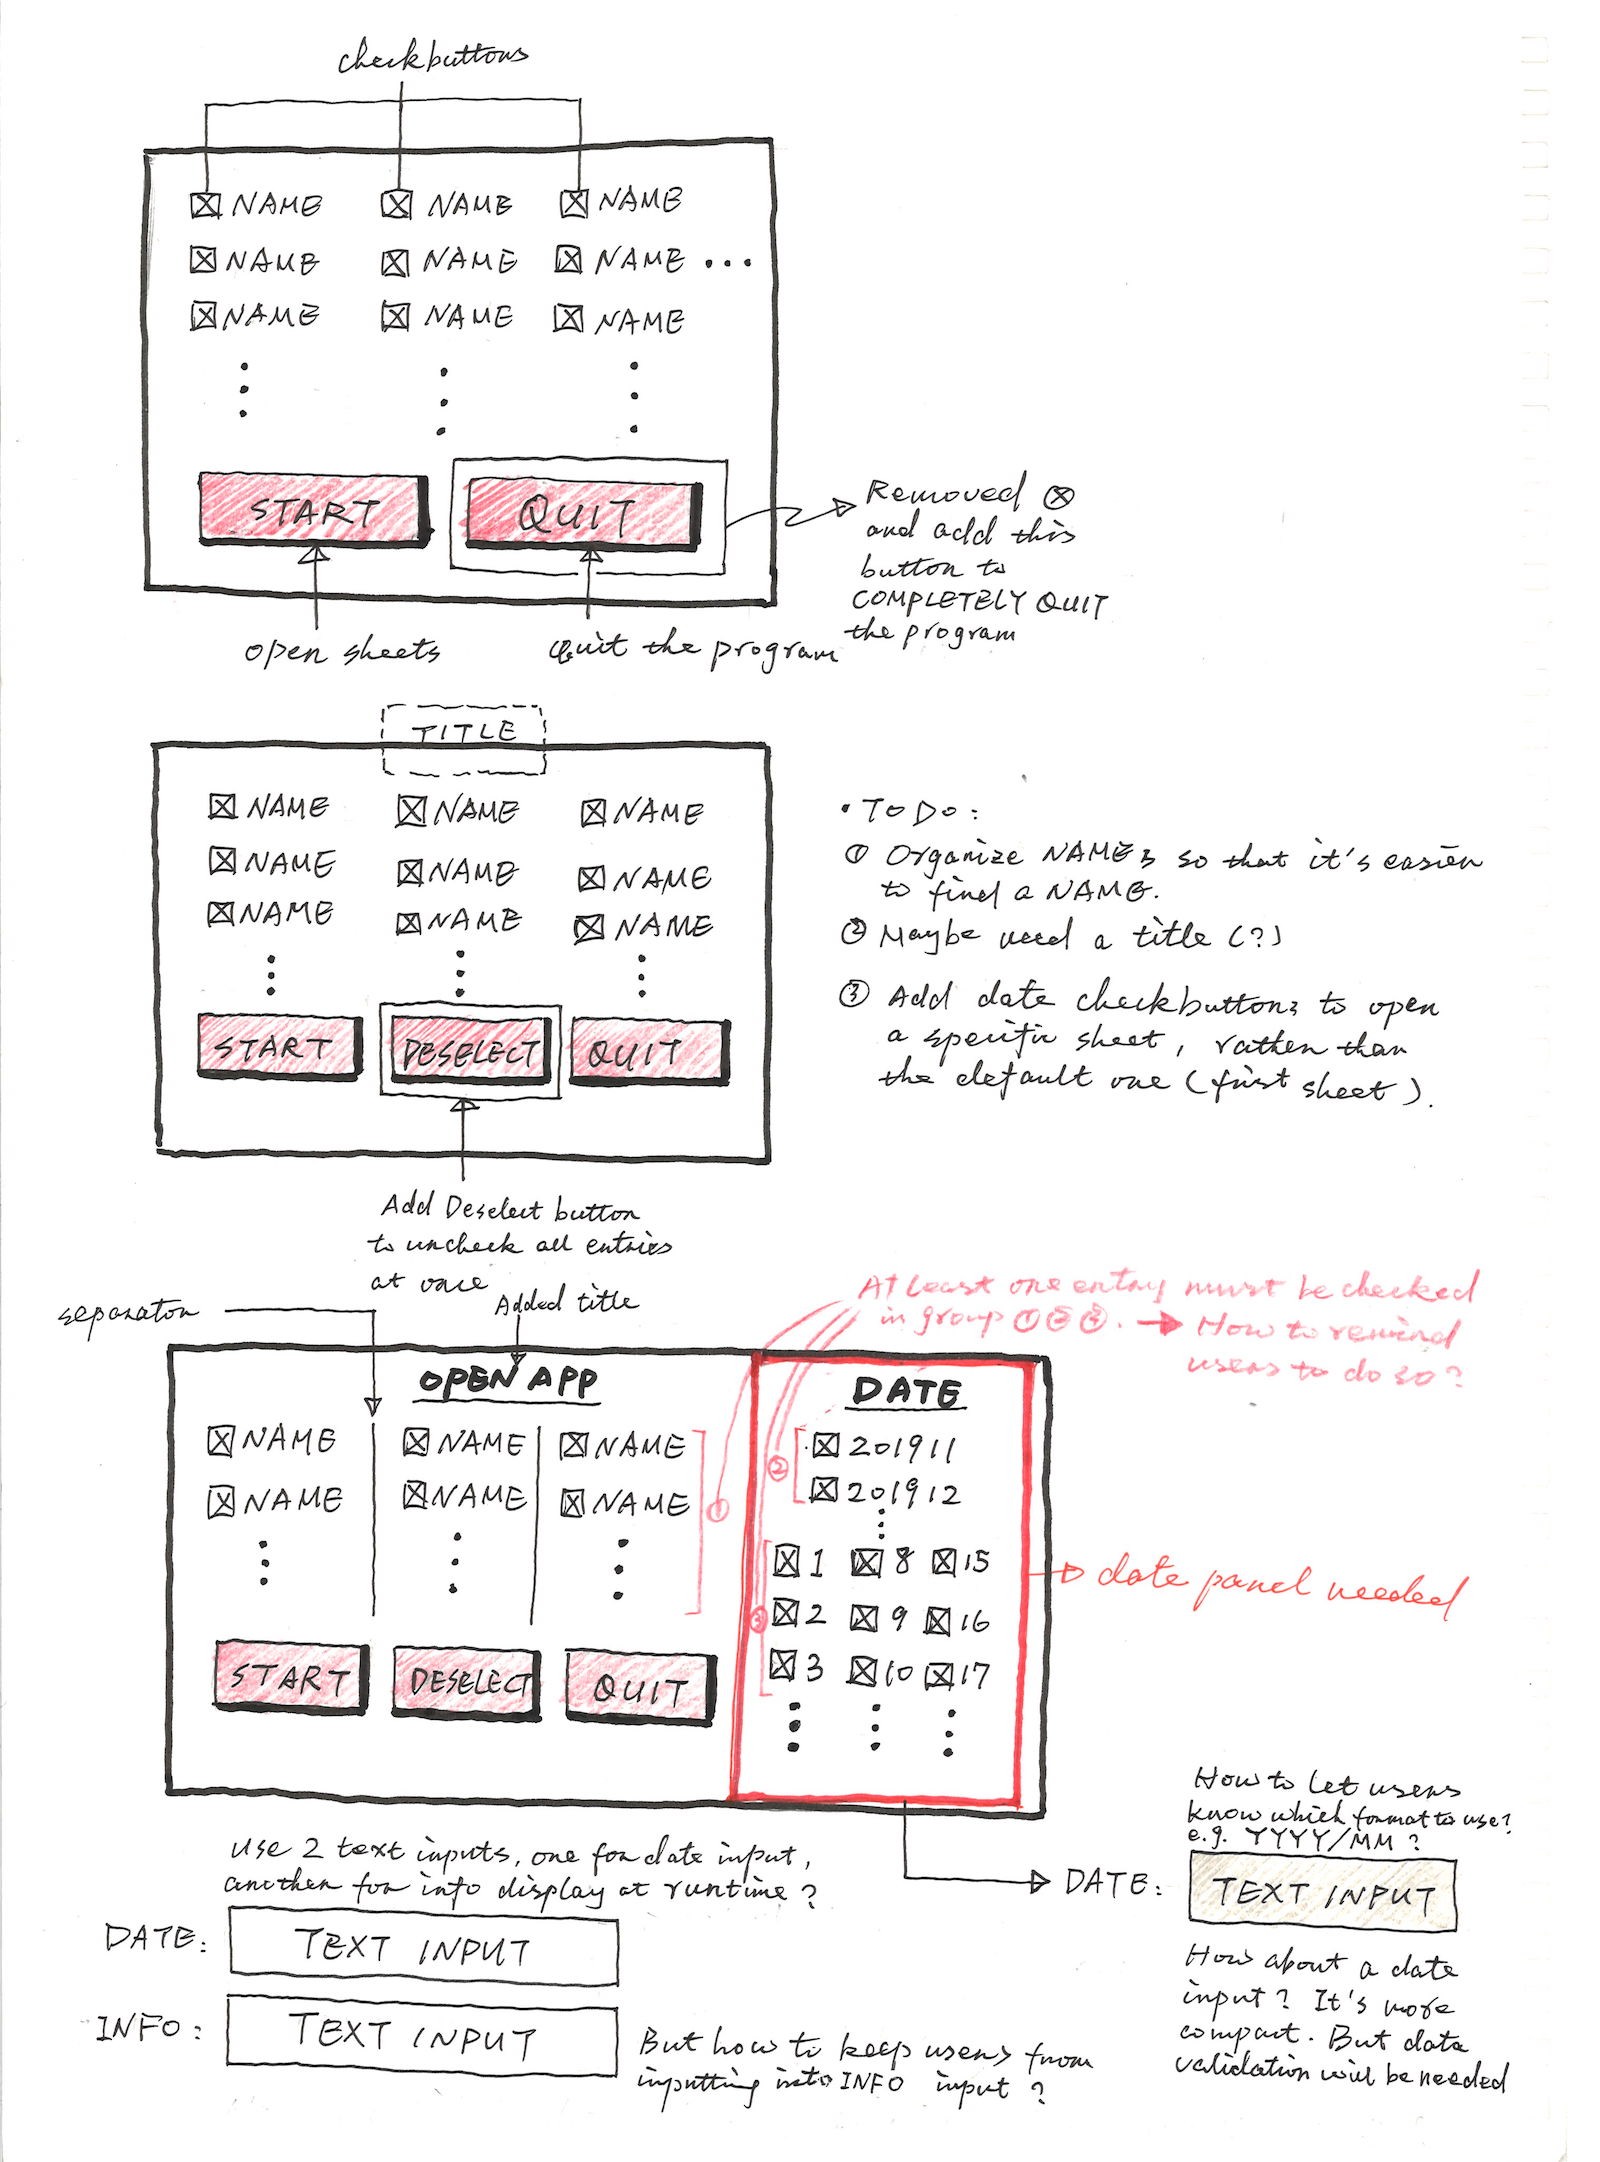 checkbuttons
NAME NAME NAME
NAME NAME NAME ...
NAME NAME NAME
START QUIT
Removed ⊗
and add this
button to
COMPLETELY QUIT
the program
open sheets
Quit the program
TITLE
NAME NAME NAME
NAME NAME NAME
NAME NAME NAME
START DESELECT QUIT
• TO DO:
① Organize NAMEs so that it's easier
to find a NAME.
② Maybe need a title (?)
③ Add date checkbuttons to open
a specific sheet, rather than
the default one (first sheet).
Add Deselect button
to uncheck all entries
at once
separator
Added title
At least one entry must be checked
in group ① ② ③. → How to remind
users to do so?
OPEN APP
NAME NAME NAME
NAME NAME NAME
①
START DESELECT QUIT
DATE
② 201911
201912
1 8 15
③ 2 9 16
3 10 17
date panel needed
How to let users
know which format to use?
e.g. YYYY/MM?
DATE: TEXT INPUT
How about a date
input? It's more
compact. But data
validation will be needed
Use 2 text inputs, one for date input,
another for info display at runtime?
DATE: TEXT INPUT
INFO: TEXT INPUT
But how to keep users from
inputting into INFO input?